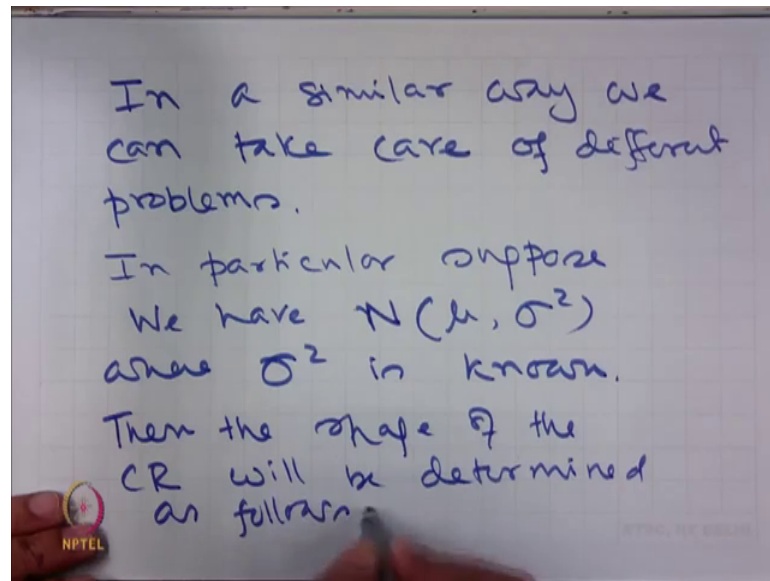 In a similar way we
can take care of different
problems.
In particular suppose
We have N(μ, σ²)
where σ² is known.
Then the shape of the
CR will be determined
as follows
NPTEL